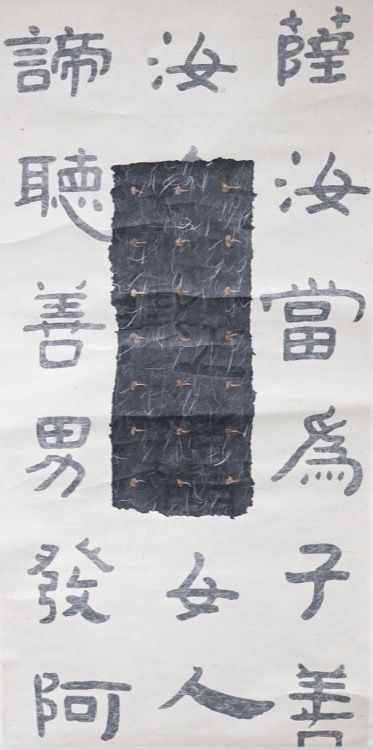 薩汝當為子善
汝女人
諦聽善男發阿